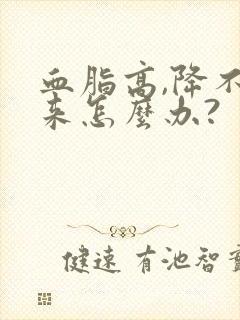 血脂高,降不
来怎麼办?
健速 有池智